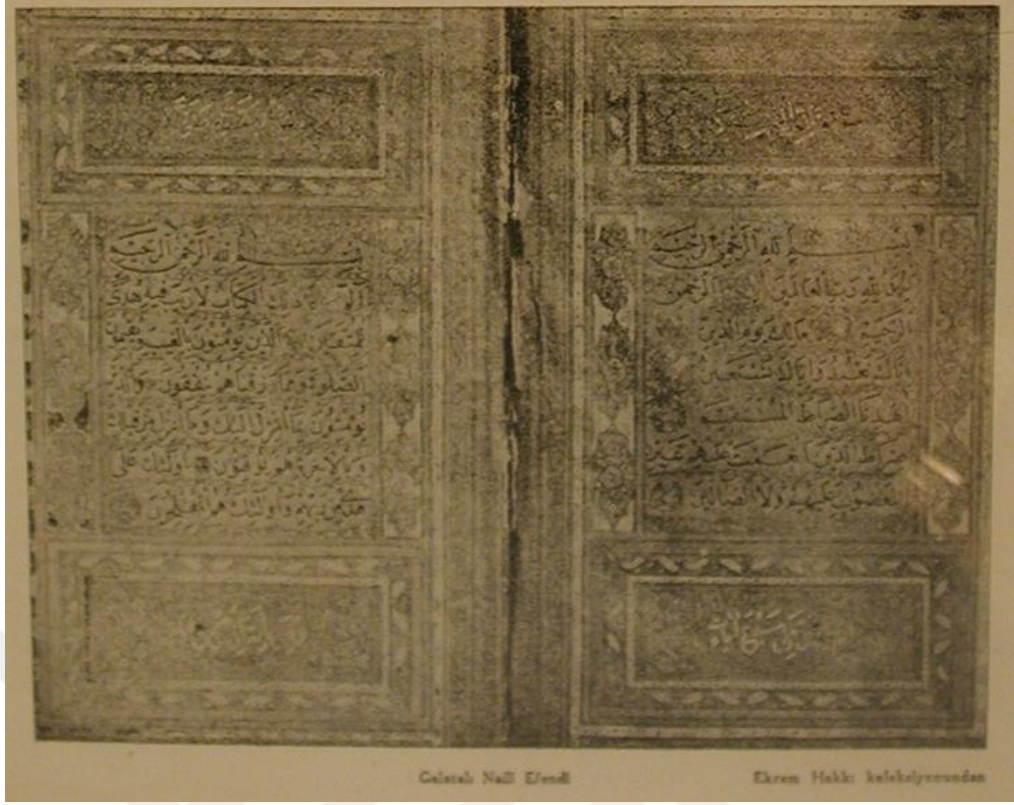 بسم الله الرحمن الرحيم
الحمد لله رب العالمين الرحمن
الرحيم مالك يوم الدين
اياك نعبد واياك نستعين
اهدنا الصراط المستقيم
صراط الذين انعمت عليهم غير
المغضوب عليهم ولا الضالين
بسم الله الرحمن الرحيم
الم ذلك الكتاب لا ريب فيه هدى
للمتقين الذين يؤمنون بالغيب ويقيمون
الصلوة ومما رزقناهم ينفقون والذين
يؤمنون بما انزل اليك وما انزل من قبلك
وبالاخرة هم يوقنون اولئك على
هدى من ربهم واولئك هم المفلحون
Galatalı Naili Efendi
Ekrem Hakkı kolleksyonundan